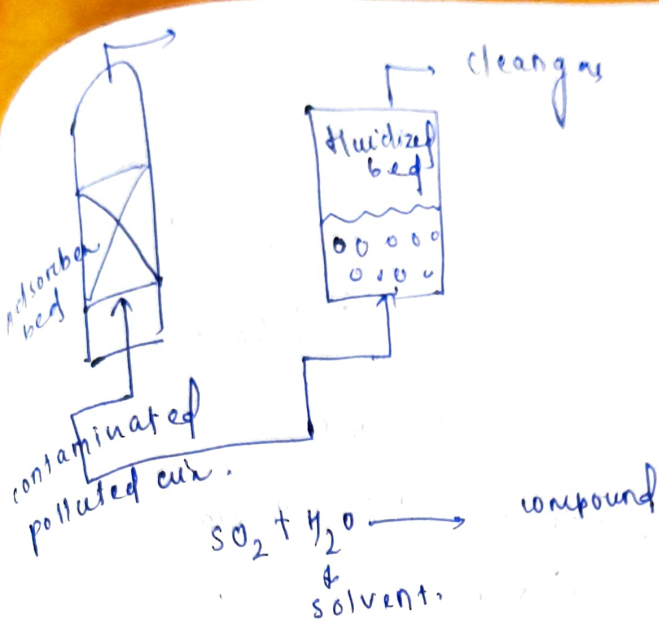 cleangas
fluidized
bed
adsorber
bed
contaminated
polluted air.
SO₂ + H₂O ⟶ compound
solvent.